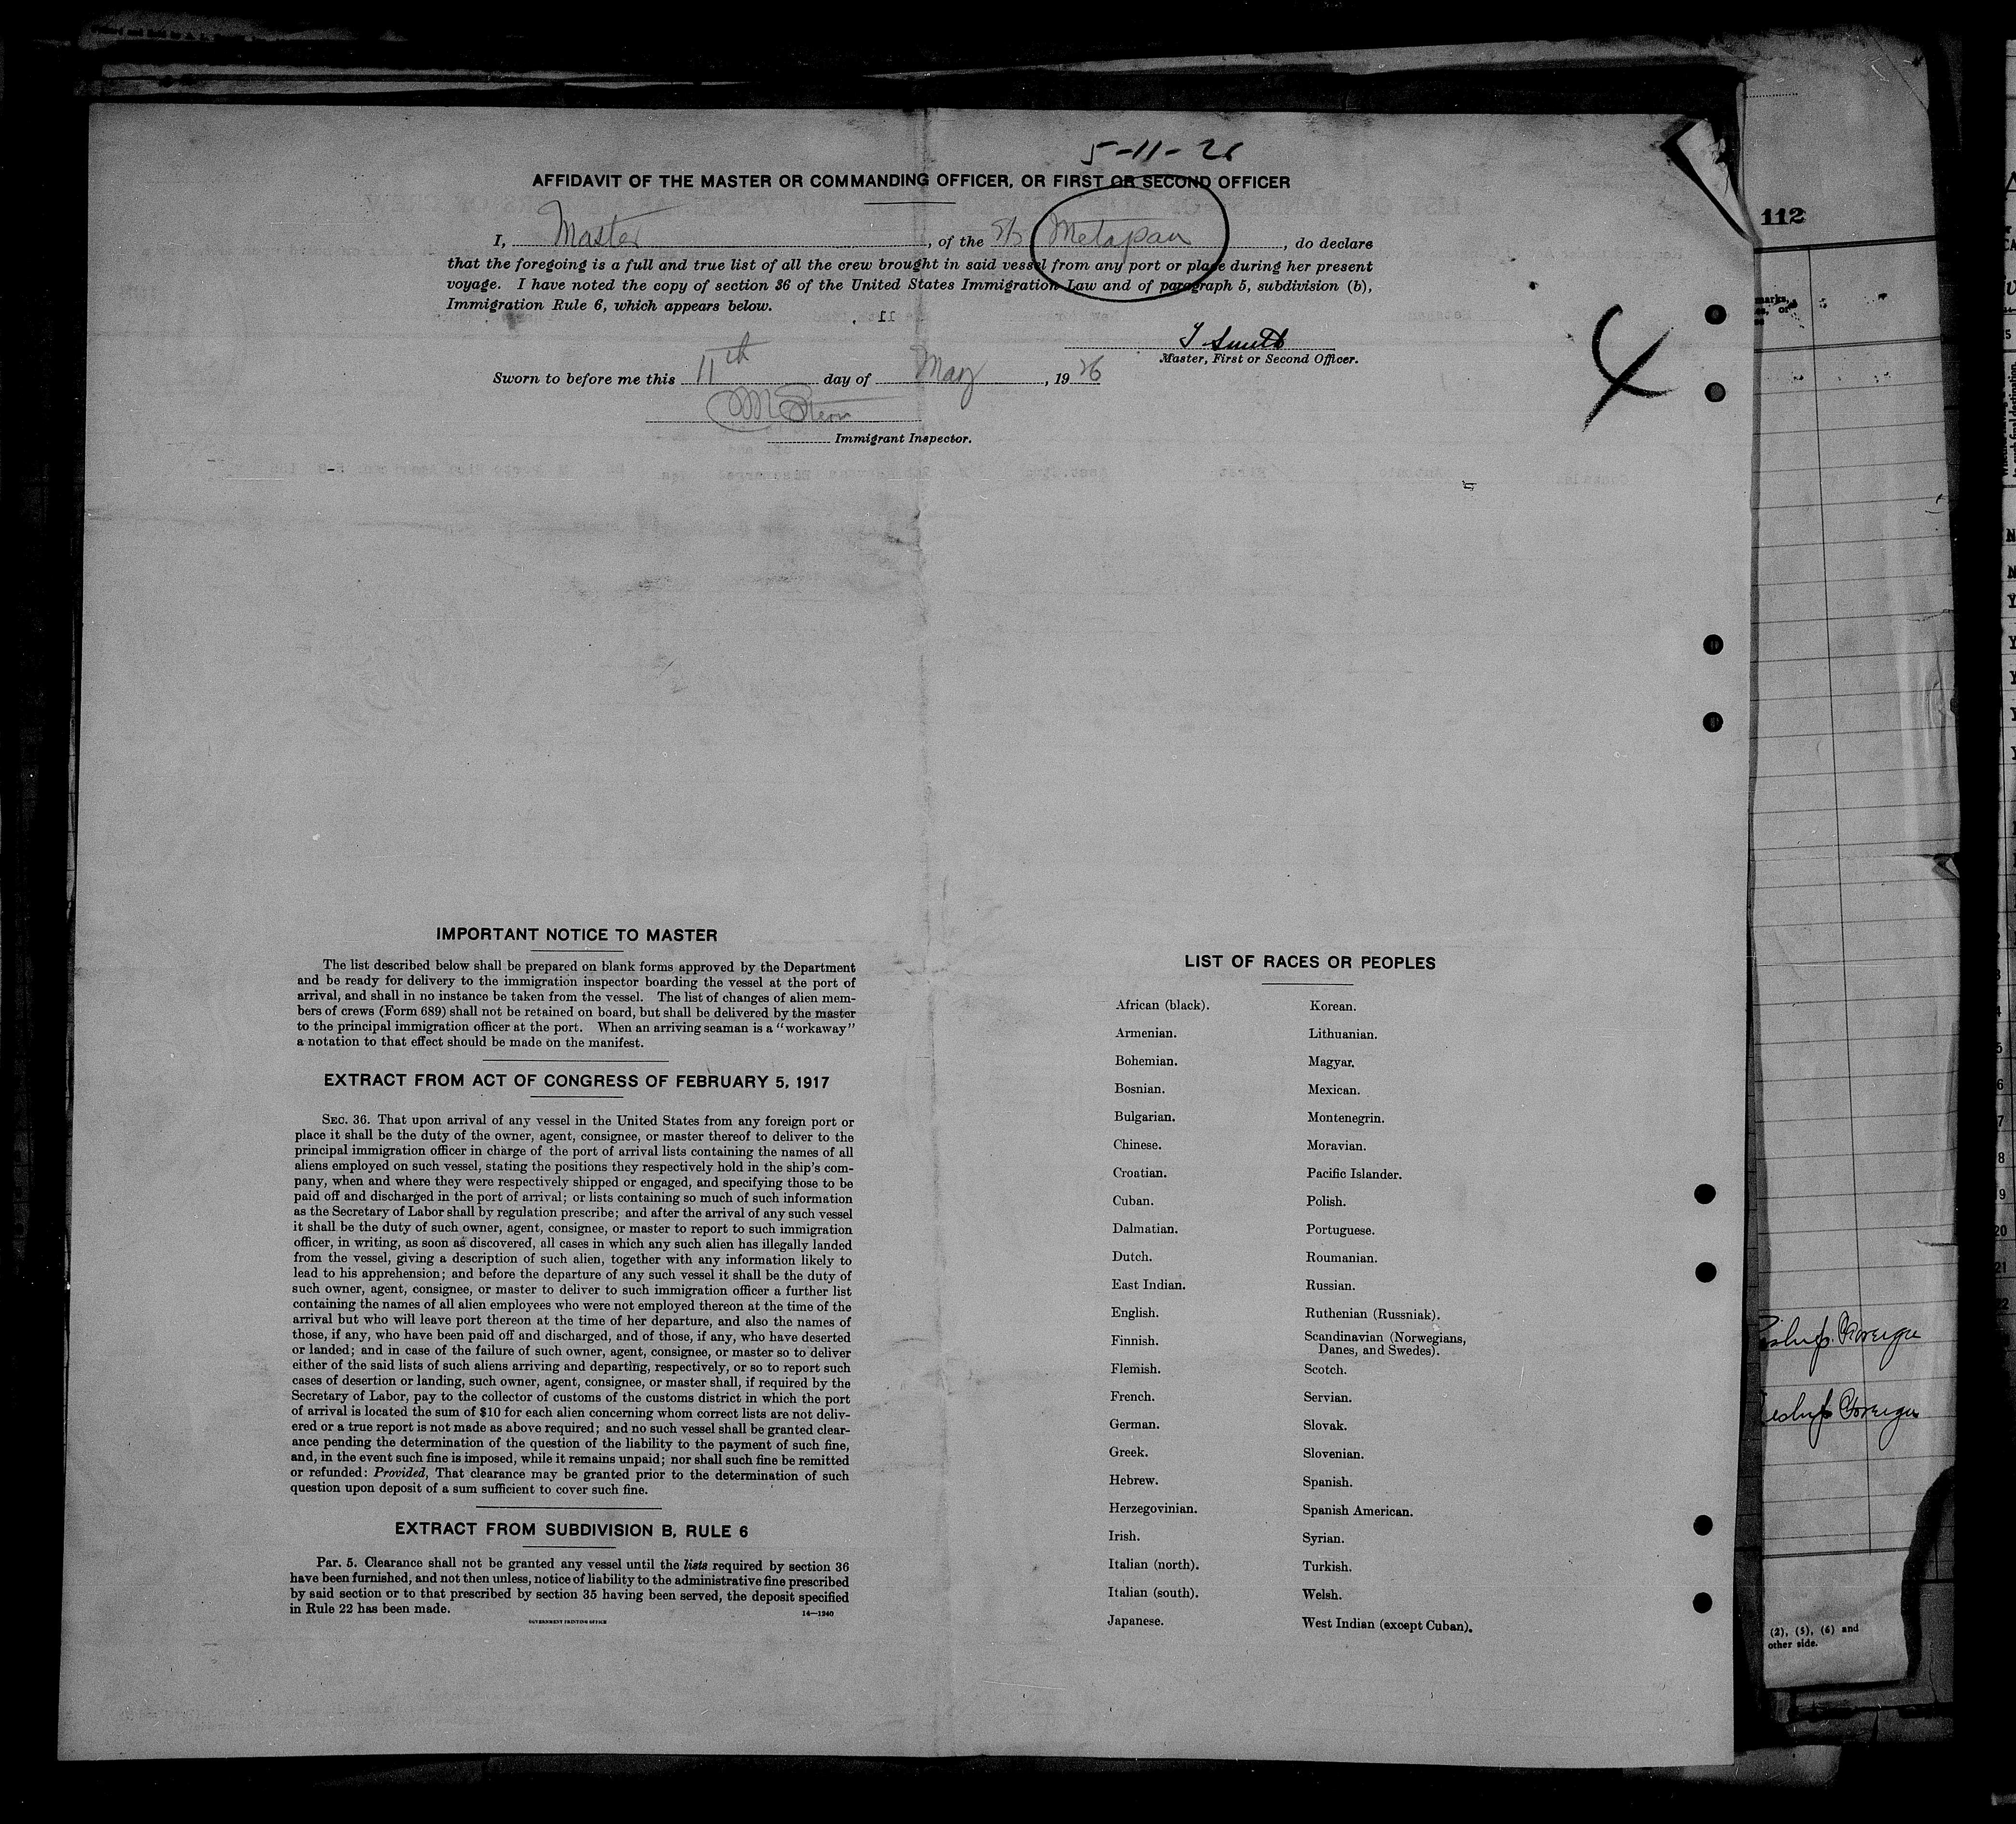 5-11-26
AFFIDAVIT OF THE MASTER OR COMMANDING OFFICER, OR FIRST OR SECOND OFFICER
I, Master, of the S/S Metapan, do declare
that the foregoing is a full and true list of all the crew brought in said vessel from any port or place during her present
voyage. I have noted the copy of section 36 of the United States Immigration Law and of paragraph 5, subdivision (b),
Immigration Rule 6, which appears below.
Smith
Master, First or Second Officer.
Sworn to before me this 11th day of May, 1926
Immigrant Inspector.
IMPORTANT NOTICE TO MASTER
The list described below shall be prepared on blank forms approved by the Department
and be ready for delivery to the immigration inspector boarding the vessel at the port of
arrival, and shall in no instance be taken from the vessel. The list of changes of alien mem-
bers of crews (Form 689) shall not be retained on board, but shall be delivered by the master
to the principal immigration officer at the port. When an arriving seaman is a "workaway"
a notation to that effect should be made on the manifest.
EXTRACT FROM ACT OF CONGRESS OF FEBRUARY 5, 1917
SEC. 36. That upon arrival of any vessel in the United States from any foreign port or
place it shall be the duty of the owner, agent, consignee, or master thereof to deliver to the
principal immigration officer in charge of the port of arrival lists containing the names of all
aliens employed on such vessel, stating the positions they respectively hold in the ship's com-
pany, when and where they were respectively shipped or engaged, and specifying those to be
paid off and discharged in the port of arrival; or lists containing so much of such information
as the Secretary of Labor shall by regulation prescribe; and after the arrival of any such vessel
it shall be the duty of such owner, agent, consignee, or master to report to such immigration
officer, in writing, as soon as discovered, all cases in which any such alien has illegally landed
from the vessel, giving a description of such alien, together with any information likely to
lead to his apprehension; and before the departure of any such vessel it shall be the duty of
such owner, agent, consignee, or master to deliver to such immigration officer a further list
containing the names of all alien employees who were not employed thereon at the time of the
arrival but who will leave port thereon at the time of her departure, and also the names of
those, if any, who have been paid off and discharged, and of those, if any, who have deserted
or landed; and in case of the failure of such owner, agent, consignee, or master so to deliver
either of the said lists of such aliens arriving and departing, respectively, or so to report such
cases of desertion or landing, such owner, agent, consignee, or master shall, if required by the
Secretary of Labor, pay to the collector of customs of the customs district in which the port
of arrival is located the sum of $10 for each alien concerning whom correct lists are not deliv-
ered or a true report is not made as above required; and no such vessel shall be granted clear-
ance pending the determination of the question of the liability to the payment of such fine,
and, in the event such fine is imposed, while it remains unpaid; nor shall such fine be remitted
or refunded: Provided, That clearance may be granted prior to the determination of such
question upon deposit of a sum sufficient to cover such fine.
EXTRACT FROM SUBDIVISION B, RULE 6
Par. 5. Clearance shall not be granted any vessel until the lists required by section 36
have been furnished, and not then unless, notice of liability to the administrative fine prescribed
by said section or to that prescribed by section 35 having been served, the deposit specified
in Rule 22 has been made.
14—1240
GOVERNMENT PRINTING OFFICE
LIST OF RACES OR PEOPLES
African (black). Korean.
Armenian. Lithuanian.
Bohemian. Magyar.
Bosnian. Mexican.
Bulgarian. Montenegrin.
Chinese. Moravian.
Croatian. Pacific Islander.
Cuban. Polish.
Dalmatian. Portuguese.
Dutch. Roumanian.
East Indian. Russian.
English. Ruthenian (Russniak).
Finnish. Scandinavian (Norwegians,
Danes, and Swedes).
Flemish. Scotch.
French. Servian.
German. Slovak.
Greek. Slovenian.
Hebrew. Spanish.
Herzegovinian. Spanish American.
Irish. Syrian.
Italian (north). Turkish.
Italian (south). Welsh.
Japanese. West Indian (except Cuban).
112
Foreign
Foreign
(2), (5), (6) and
other side.